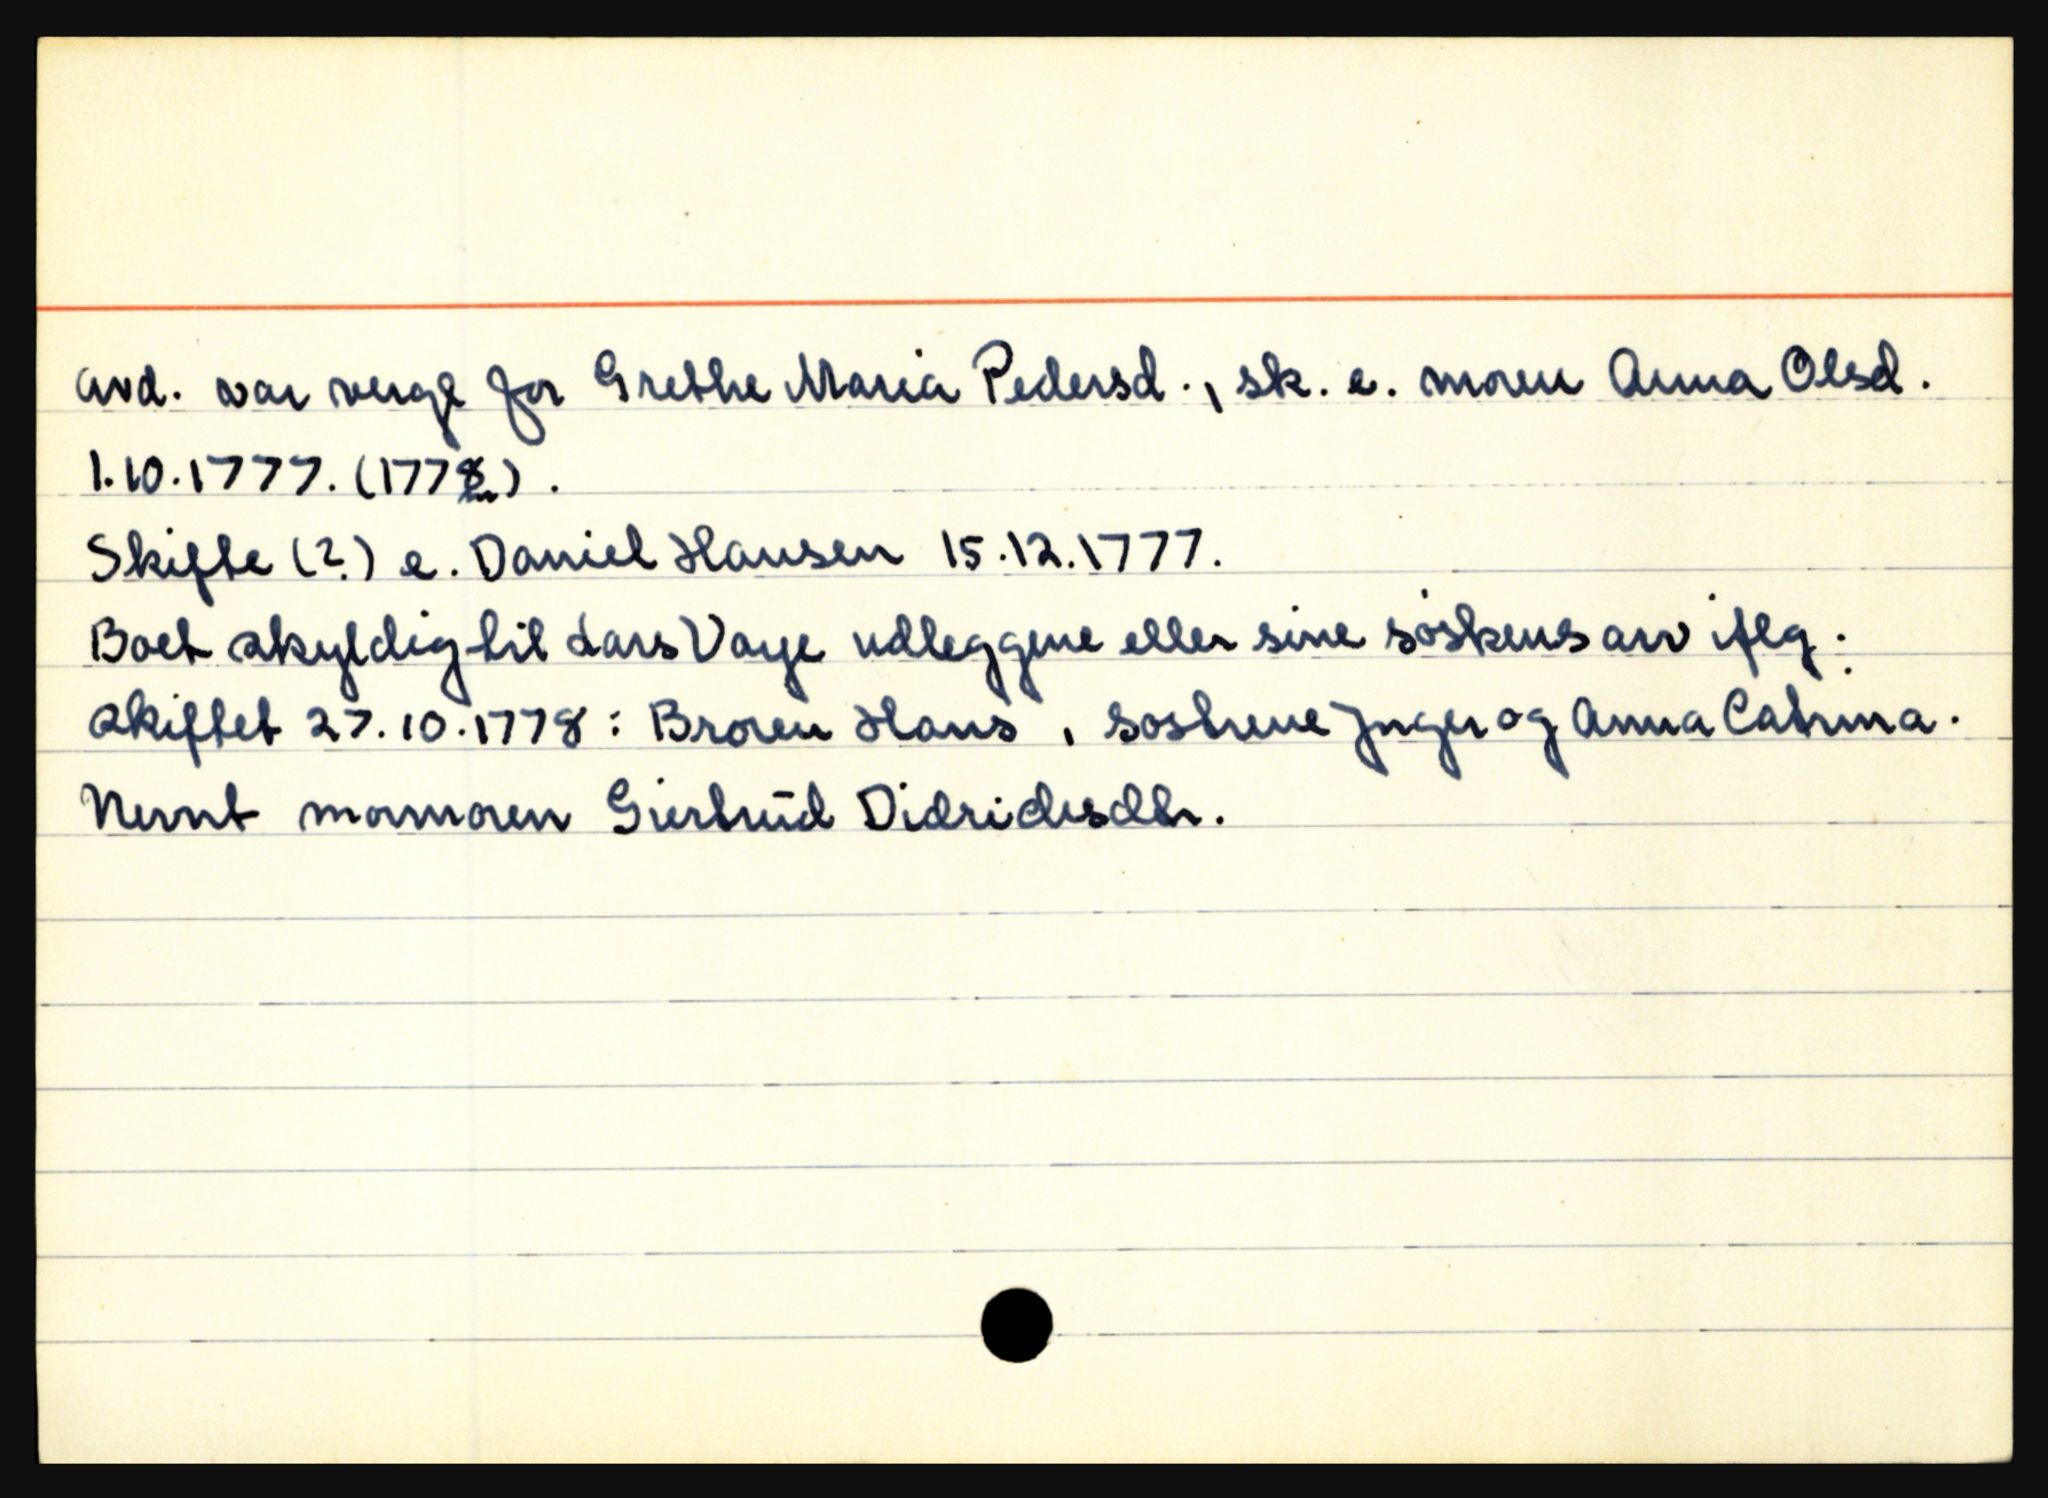 avd. var verge for Grethe Maria Pedersd., sk. e. moren Anna Olsd.
1.10.1777. (1778).
Skifte (?) e. Daniel Hansen 15.12.1777.
Boet skyldig til Lars Voye udleggene eller sine søskens arv iflg.
skiftet 27.10.1778: Broren Hans, søstrene Jnger og Anna Catrina.
Nevnt mormoren Giertrūd Didrichsdtr.